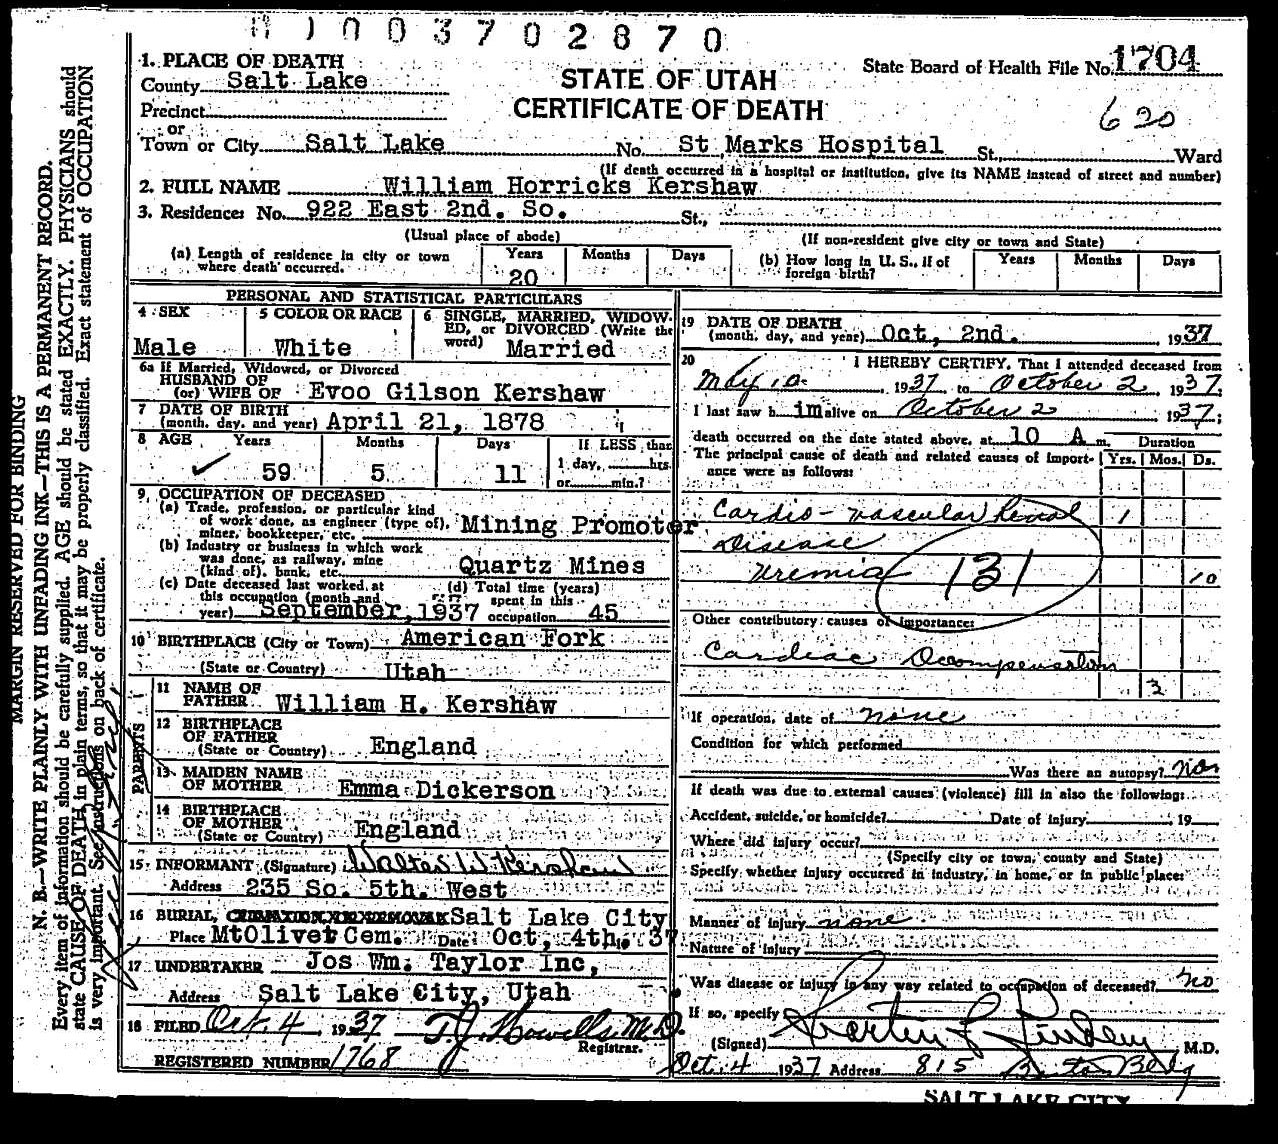 1003702870
1. PLACE OF DEATH
County Salt Lake
STATE OF UTAH
State Board of Health File No. 1704
Precinct
CERTIFICATE OF DEATH
620
or
Town or City Salt Lake No. St Marks Hospital St., Ward
(If death occurred in a hospital or institution, give its NAME instead of street and number)
2. FULL NAME William Horricks Kershaw
3. Residence: No. 922 East 2nd. So. St.,
(Usual place of abode) (If non-resident give city or town and State)
(a) Length of residence in city or town where death occurred. Years 20 Months Days
(b) How long in U. S., if of foreign birth? Years Months Days
PERSONAL AND STATISTICAL PARTICULARS
4 SEX
Male
5 COLOR OR RACE
White
6 SINGLE, MARRIED, WIDOWED, or DIVORCED (Write the word) Married
6a If Married, Widowed, or Divorced
HUSBAND OF
(or) WIFE OF Evoo Gilson Kershaw
7 DATE OF BIRTH
(month, day, and year) April 21, 1878
8 AGE Years Months Days If LESS than
59 5 11 1 day, hrs.
or min.?
9 OCCUPATION OF DECEASED
(a) Trade, profession, or particular kind
of work done, as engineer (type of),
miner, bookkeeper, etc. Mining Promoter
(b) Industry or business in which work
was done, as railway, mine
(kind of), bank, etc. Quartz Mines
(c) Date deceased last worked at
this occupation (month and
year) September, 1937
(d) Total time (years)
spent in this
occupation 45
10 BIRTHPLACE (City or Town) American Fork
(State or Country) Utah
PARENTS
11 NAME OF
FATHER William H. Kershaw
12 BIRTHPLACE
OF FATHER
(State or Country) England
13 MAIDEN NAME
OF MOTHER Emma Dickerson
14 BIRTHPLACE
OF MOTHER
(State or Country) England
15 INFORMANT (Signature) Walter W Kershaw
Address 235 So. 5th. West
16 BURIAL, Salt Lake City
Place MtOlivet Cem. Date Oct, 4th. 37
17 UNDERTAKER Jos Wm. Taylor Inc,
Address Salt Lake City, Utah
18 FILED Oct. 4 1937 T.J. Howells M.D.
Registrar.
REGISTERED NUMBER 1768
19 DATE OF DEATH
(month, day, and year) Oct, 2nd. 1937
20 I HEREBY CERTIFY, That I attended deceased from
May 10 1937 to October 2 1937;
I last saw him alive on October 2 1937;
death occurred on the date stated above, at 10 A m. Duration
The principal cause of death and related causes of importance were as follows: Yrs. Mos. Ds.
Cardio-vascular Renal 1
Disease
Uremia 131 10
Other contributory causes of importance:
Cardiac Decompensation
3
If operation, date of none
Condition for which performed
Was there an autopsy? no
If death was due to external causes (violence) fill in also the following:
Accident, suicide, or homicide? Date of injury 19
Where did injury occur?
(Specify city or town, county and State)
Specify whether injury occurred in industry, in home, or in public place:
Manner of injury none
Nature of injury
Was disease or injury in any way related to occupation of deceased? no
If so, specify
(Signed) M.D.
Oct. 4 1937 Address 815
SALT LAKE CITY
MARGIN RESERVED FOR BINDING
N. B.—WRITE PLAINLY WITH UNFADING INK—THIS IS A PERMANENT RECORD.
Every item of information should be carefully supplied. AGE should be stated EXACTLY. PHYSICIANS should
state CAUSE OF DEATH in plain terms, so that it may be properly classified. Exact statement of OCCUPATION
is very important. See instructions on back of certificate.